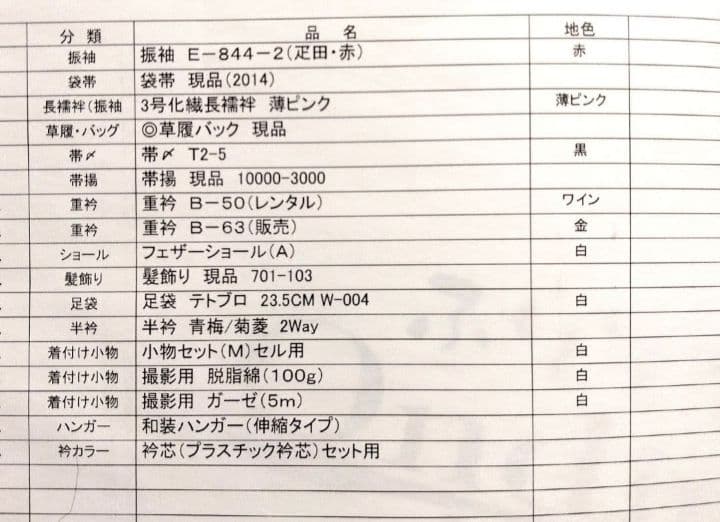 分類 品名 地色
振袖 振袖 E-844-2(疋田・赤) 赤
袋帯 袋帯 現品(2014)
長襦袢(振袖 3号化繊長襦袢 薄ピンク 薄ピンク
草履・バッグ ◎草履バック 現品
帯〆 帯〆 T2-5 黒
帯揚 帯揚 現品 10000-3000
重衿 重衿 B-50(レンタル) ワイン
重衿 重衿 B-63(販売) 金
ショール フェザーショール(A) 白
髪飾り 髪飾り 現品 701-103
足袋 足袋 テトブロ 23.5CM W-004 白
半衿 半衿 青梅/菊菱 2Way
着付け小物 小物セット(M)セル用 白
着付け小物 撮影用 脱脂綿(100g) 白
着付け小物 撮影用 ガーゼ(5m) 白
ハンガー 和装ハンガー(伸縮タイプ)
衿カラー 衿芯(プラスチック衿芯)セット用